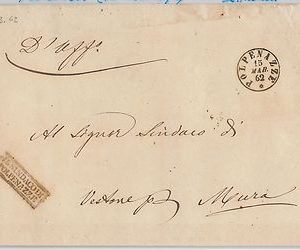 D'Aff.
POLPENAZZE
15
MAR.
62
Al Signor Sindaco di
Vestone p Mura